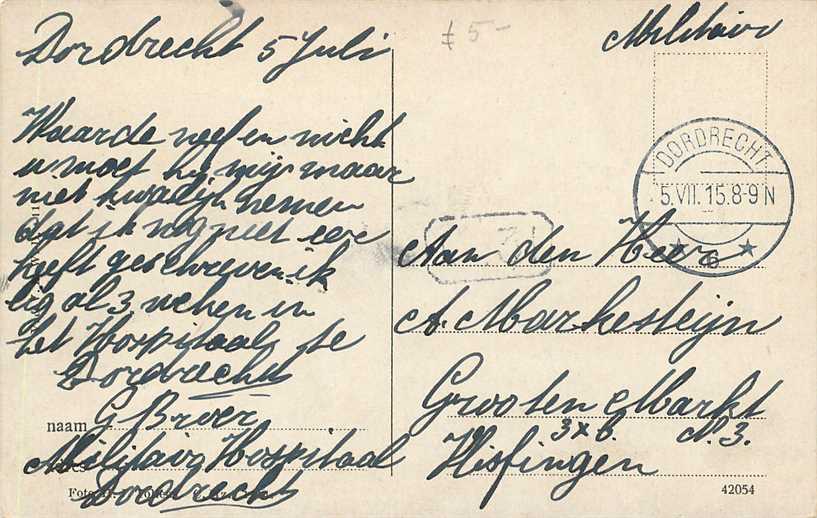 Dordrecht 5 Juli
Waarde neef en nicht
u moet hij mijn maar
niet kwalijk nemen
dat ik nog niet eer
heeft geschreven ik
lig al 3 weken in
het Hospitaal te
Dordrecht
naam G Broer
Militair Hospitaal
Dordrecht
£ 5-
Militair
DORDRECHT
5.VII.15.8-9N
6
Aan den Heer
A. Markesteijn
Grooten Markt
3x6. N. 3.
Vlisfingen
42054